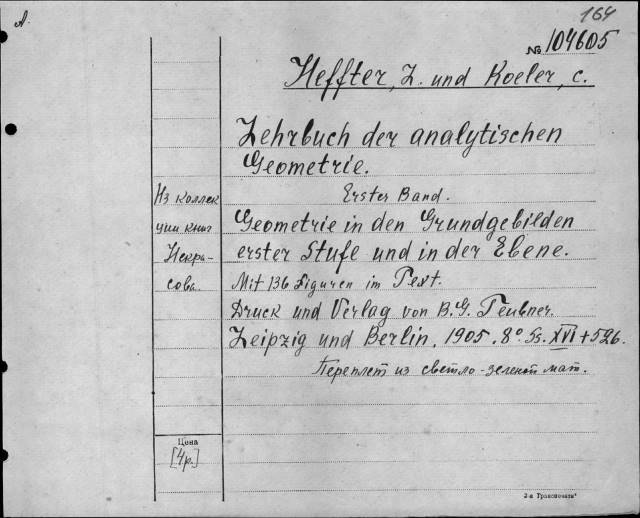 А.
164
№ 104605
Heffter, L. und Koeler, C.
Lehrbuch der analytischen
Geometrie.
Erster Band.
Geometrie in den Grundgebilden
erster Stufe und in der Ebene.
Mit 136 Figuren im Text.
Druck und Verlag von B.G. Teubner.
Leipzig und Berlin, 1905. 8° Ss. XVI + 526.
Переплет из светло-зеленой мат.
Из коллек
ции книг
Некра-
сова.
Цена
[4р.]